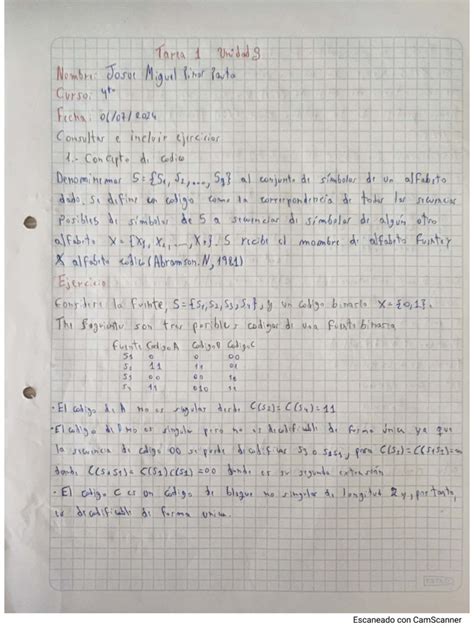 Tarea 1 Unidad 3
Nombre: Josue Miguel
Curso: 4to
Fecha: 01/07/2024
Consultar e incluir ejercicios
1.- Concepto de codigo
Denominemos S = {S1, S2, ..., Sq} al conjunto de símbolos de un alfabeto
dado. Se define un codigo como la correspondencia de todas las secuencias
posibles de símbolos de S a secuencias de símbolos de algun otro
alfabeto X = {X1, X2, ..., Xr}. S recibe el nombre de alfabeto fuente y
X alfabeto codigo (Abramson. N, 1981)
Ejercicio
Considere la fuente, S = {S1, S2, S3, S4}, y un codigo binario X = {0,1}.
The siguientes son tres posibles codigos de una fuente binaria
Fuente Codigo A Codigo B Codigo C
S1 0 0 00
S2 11 11 01
S3 00 00 10
S4 11 010 11
· El codigo A no es singular desde C(S2) = C(S4) = 11
· El codigo B no es singular pero no es decodificable de forma única ya que
la secuencia de codigo 00 se puede decodificar S3 o S1S1, para C(S3) =
donde C(S1S1) = C(S1)C(S1) = 00 donde es su segunda extensión
· El codigo C es un codigo de bloque no singular de longitud 2 y, por tanto,
es decodificable de forma unica.
Escaneado con CamScanner